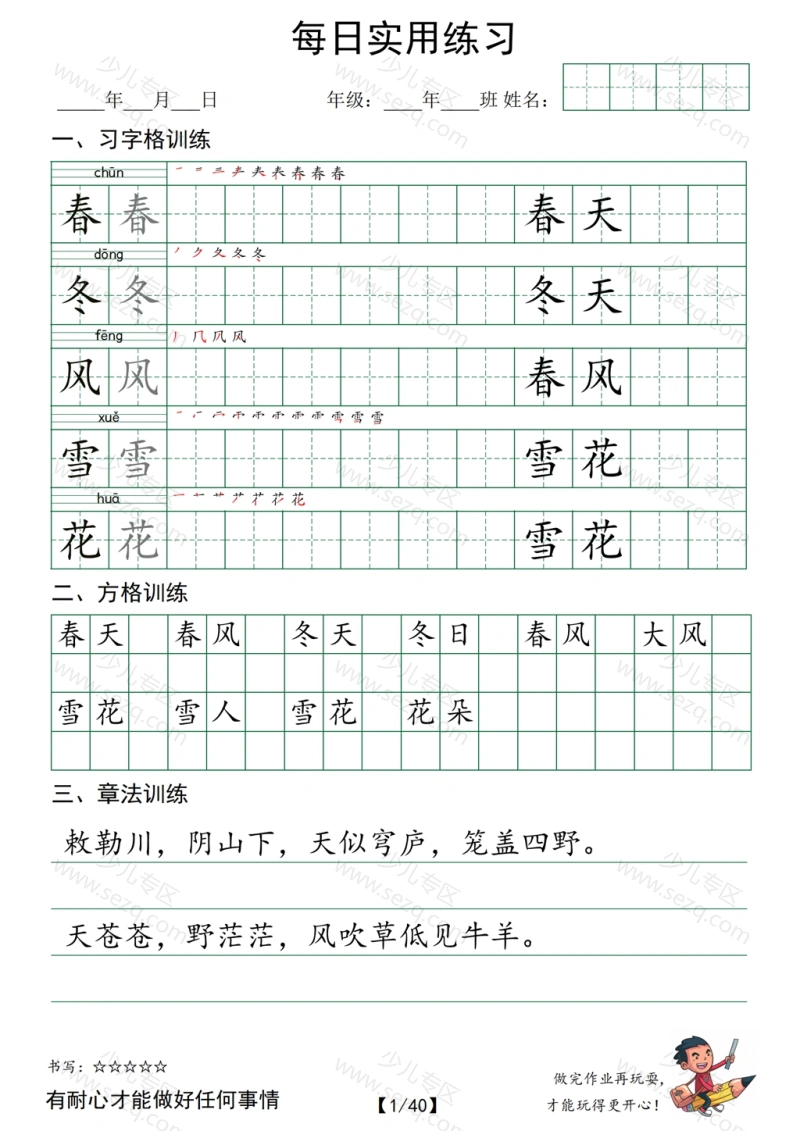 每日实用练习
_____年___月___日 年级：____年____班 姓名：
一、习字格训练
chūn
春 春 春 天
dōng
冬 冬 冬 天
fēng
风 风 春 风
xuě
雪 雪 雪 花
huā
花 花 雪 花
二、方格训练
春天 春风 冬天 冬日 春风 大风
雪花 雪人 雪花 花朵
三、章法训练
敕勒川，阴山下，天似穹庐，笼盖四野。
天苍苍，野茫茫，风吹草低见牛羊。
书写：☆☆☆☆☆
有耐心才能做好任何事情
【1/40】
做完作业再玩耍，
才能玩得更开心！
少儿专区
www.sezq.com